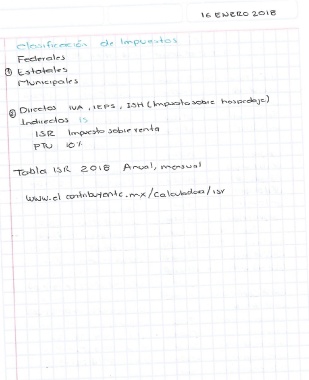 16 ENERO 2018
Clasificación de Impuestos
Federales
① Estatales
Municipales
② Directos IVA, IEPS, ISH (Impuesto sobre hospedaje)
Indirectos is
ISR Impuesto sobre renta
PTU 10%
Tabla ISR 2018 Anual, mensual
www.el contribuyente.mx/calculadora/isr